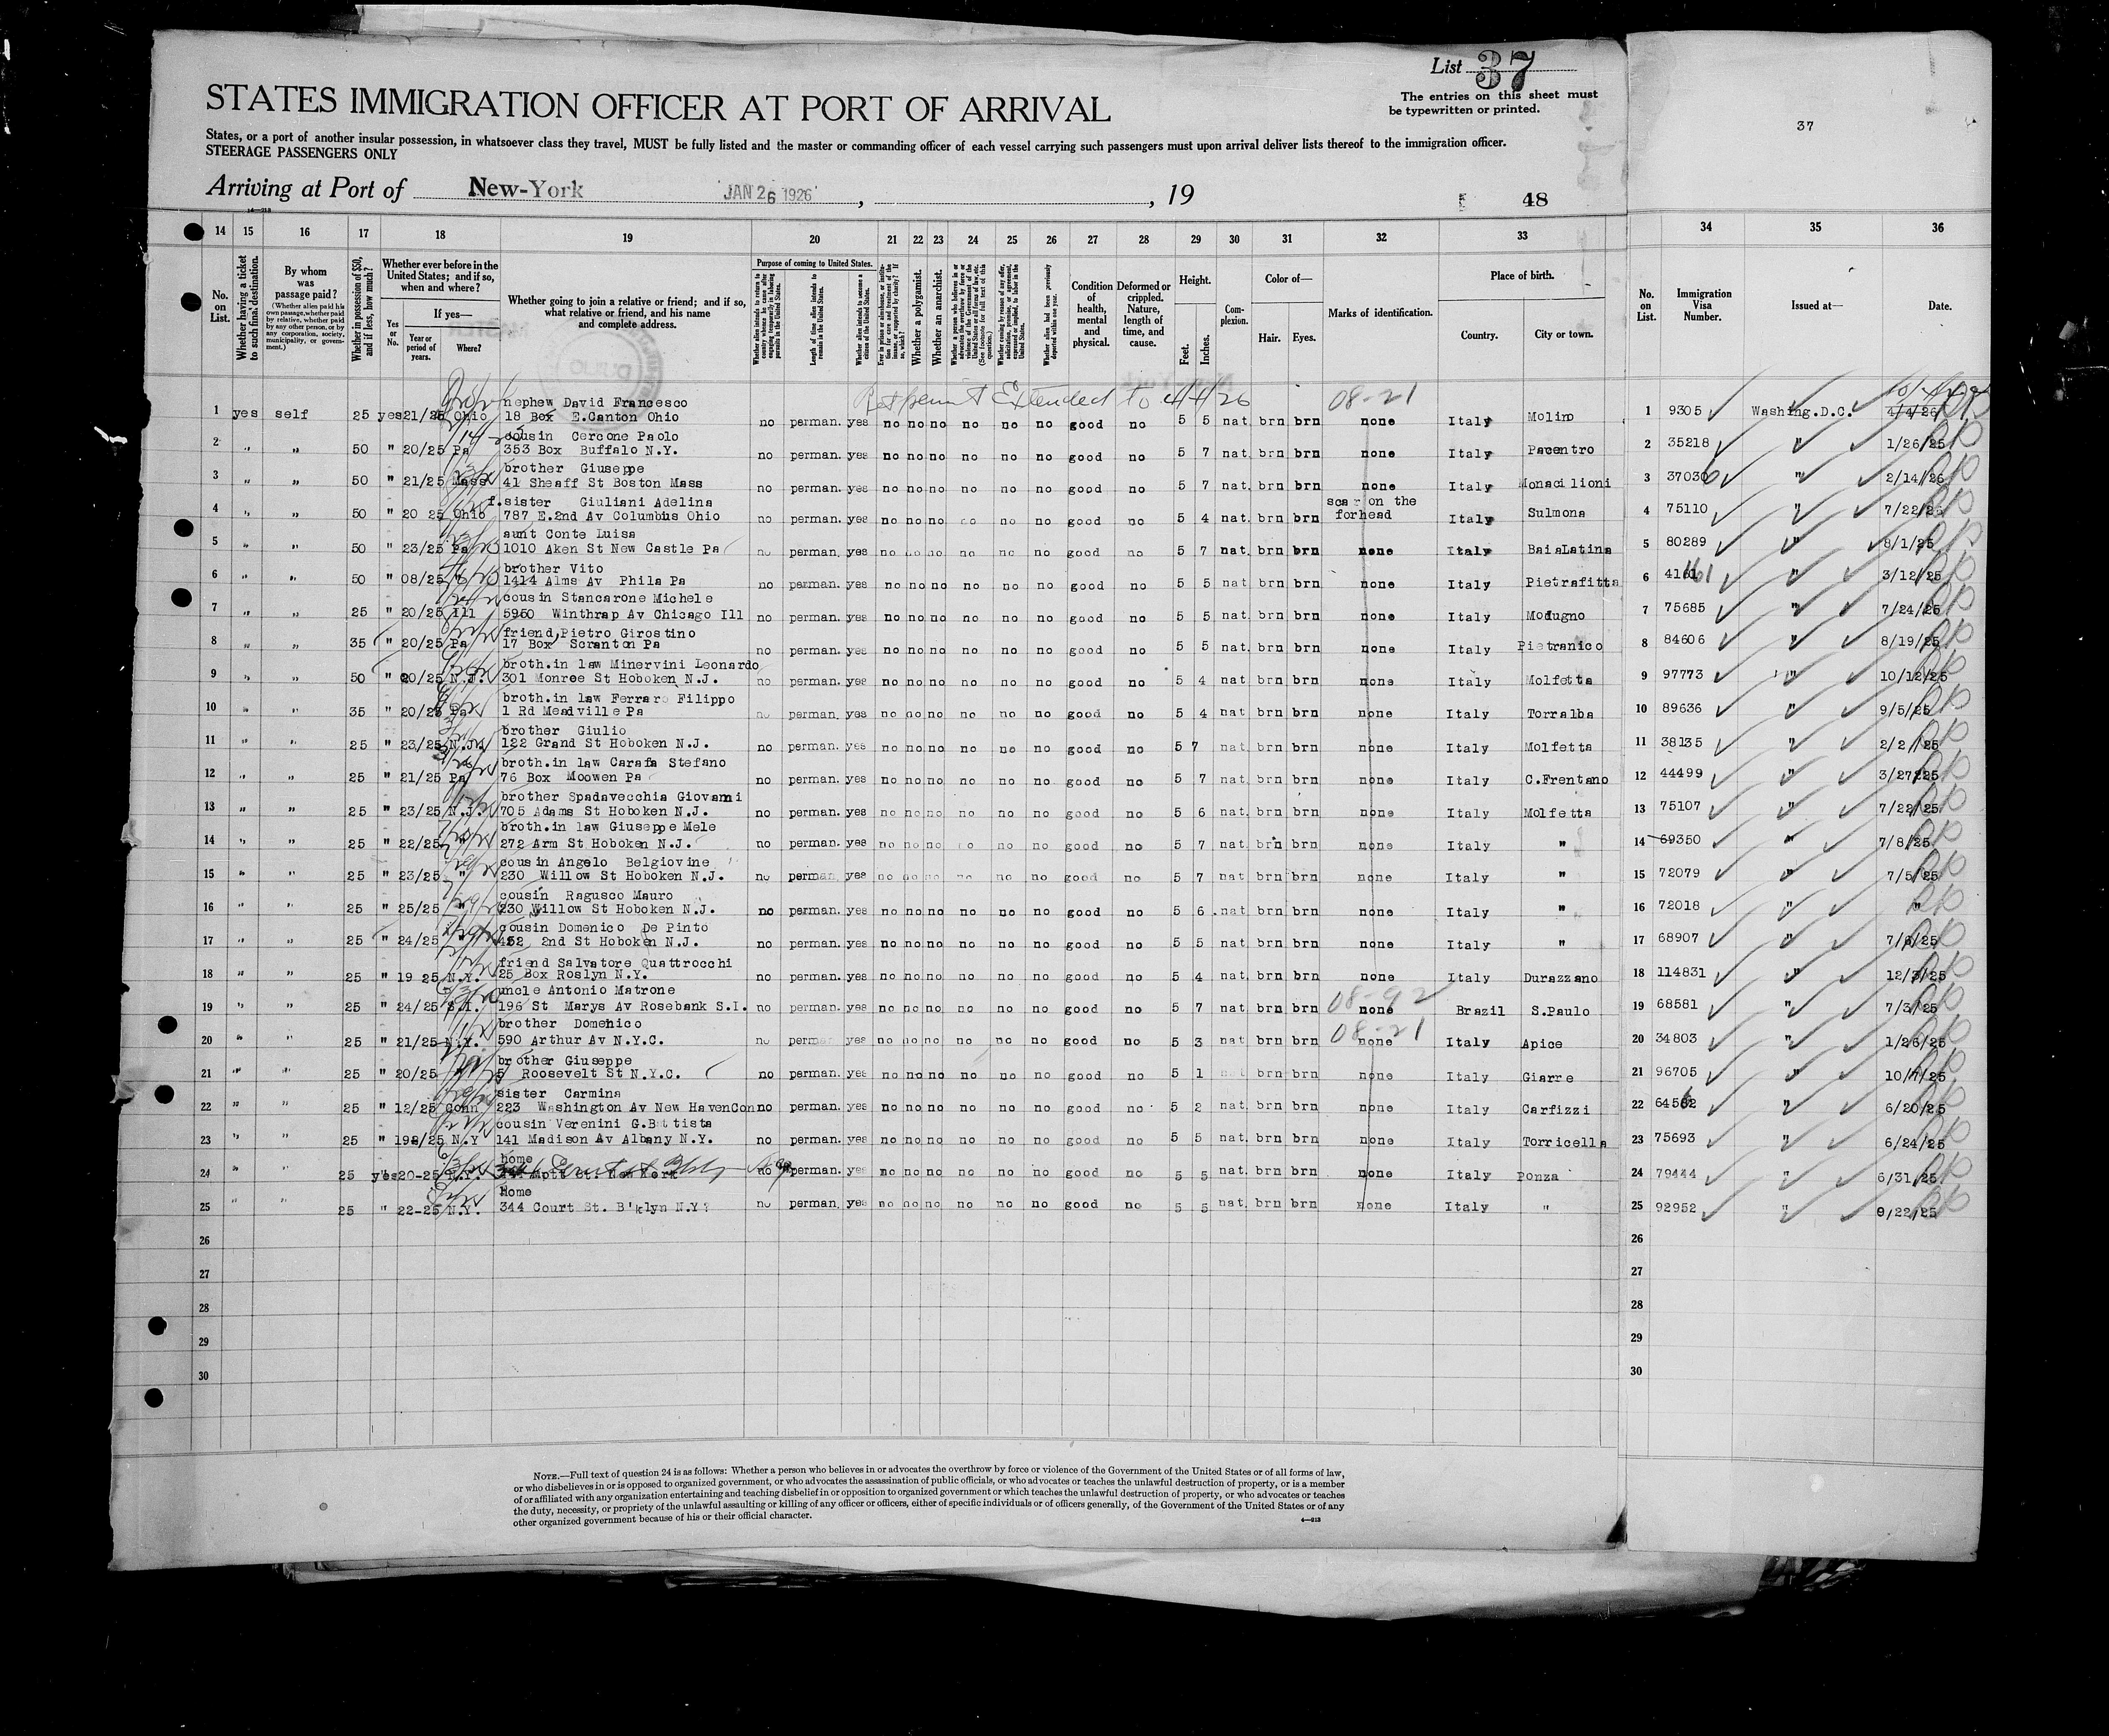 List 37
The entries on this sheet must
be typewritten or printed.
37
STATES IMMIGRATION OFFICER AT PORT OF ARRIVAL
States, or a port of another insular possession, in whatsoever class they travel, MUST be fully listed and the master or commanding officer of each vessel carrying such passengers must upon arrival deliver lists thereof to the immigration officer.
STEERAGE PASSENGERS ONLY
Arriving at Port of New-York JAN 26 1926, , 19
48
14 15 16 17 18 19 20 21 22 23 24 25 26 27 28 29 30 31 32 33 34 35 36
No. on List.
Whether having a ticket to such final destination.
By whom was passage paid?
(Whether alien paid his own passage, whether paid by relative, whether paid by any other person, or by any corporation, society, municipality, or government.)
Whether in possession of $50, and if less, how much?
Whether ever before in the United States; and if so, when and where?
Yes or No.
If yes—
Year or period of years.
Where?
Whether going to join a relative or friend; and if so, what relative or friend, and his name and complete address.
Purpose of coming to United States.
Length of time alien intends to remain in the United States.
Whether alien intends to become a citizen of the United States.
Whether a polygamist.
Whether an anarchist.
Condition of health, mental and physical.
Deformed or crippled. Nature, length of time, and cause.
Height.
Feet. Inches.
Complexion.
Color of—
Hair. Eyes.
Marks of identification.
Place of birth.
Country. City or town.
No. on List.
Immigration Visa Number.
Issued at—
Date.
Ret permit Extended to 4/4/26 08-21
1 yes self 25 yes 21/25 Ohio nephew David Francesco
18 Box E.Canton Ohio no perman. yes no no no no no no good no 5 5 nat. brn brn none Italy Molino 1 9305 Washing.D.C. 4/4/26
2 " " 50 " 20/25 Pa cousin Cercone Paolo
353 Box Buffalo N.Y. no perman. yes no no no no no no good no 5 7 nat. brn brn none Italy Pacentro 2 35218 " 1/26/25
3 " " 50 " 21/25 Mass brother Giuseppe
41 Sheaff St Boston Mass no perman. yes no no no no no no good no 5 7 nat. brn brn none Italy Monacilioni 3 37030 " 2/14/26
4 " " 50 " 20 25 Ohio f. sister Giuliani Adelina
787 E.2nd Av Columbus Ohio no perman. yes no no no no no no good no 5 4 nat. brn brn scar on the forhead Italy Sulmona 4 75110 " 7/22/25
5 " " 50 " 23/25 Pa aunt Conte Luisa
1010 Aken St New Castle Pa no perman. yes no no no no no no good no 5 7 nat. brn brn none Italy BaiaLatina 5 80289 " 8/1/25
6 " " 50 " 08/25 " brother Vito
1414 Alms Av Phila Pa no perman. yes no no no no no no good no 5 5 nat. brn brn none Italy Pietrafitta 6 " 3/12/25
7 " " 25 " 20/25 Ill cousin Stancarone Michele
5950 Winthrap Av Chicago Ill no perman. yes no no no no no no good no 5 5 nat. brn brn none Italy Modugno 7 75685 " 7/24/25
8 " " 35 " 20/25 Pa friend Pietro Girostino
17 Box Scranton Pa no perman. yes no no no no no no good no 5 5 nat. brn brn none Italy Pietranico 8 84606 " 8/19/25
9 " " 50 " 20/25 N.J. broth.in law Minervini Leonardo
301 Monroe St Hoboken N.J. no perman. yes no no no no no no good no 5 4 nat brn brn none Italy Molfetta 9 97773 " 10/12/25
10 " " 35 " 20/25 Pa broth.in law Ferraro Filippo
1 Rd Meadville Pa no perman. yes no no no no no no good no 5 4 nat brn brn none Italy Torralba 10 89636 " 9/5/25
11 " " 25 " 23/25 N.J. brother Giulio
122 Grand St Hoboken N.J. no perman. yes no no no no no no good no 5 7 nat. brn brn none Italy Molfetta 11 38135 " 2/2/25
12 " " 25 " 21/25 Pa broth.in law Carafa Stefano
76 Box Moowen Pa no perman. yes no no no no no no good no 5 7 nat. brn brn none Italy C.Frentano 12 44499 " 3/27225
13 " " 25 " 23/25 N.J. brother Spadavecchia Giovanni
705 Adams St Hoboken N.J. no perman. yes no no no no no no good no 5 6 nat. brn brn none Italy Molfetta 13 75107 " 7/22/25
14 " " 25 " 22/25 " broth.in law Giuseppe Mele
272 Arm St Hoboken N.J. no perman. yes no no no no no no good no 5 7 nat. brn brn none Italy " 14 69350 " 7/8/25
15 " " 25 " 23/25 " cousin Angelo Belgiovine
230 Willow St Hoboken N.J. no perman. yes no no no no no no good no 5 7 nat brn brn none Italy " 15 72079 " 7/5/25
16 " " 25 " 25/25 " cousin Ragusco Mauro
230 Willow St Hoboken N.J. no perman. yes no no no no no no good no 5 6 nat brn brn none Italy " 16 72018 " "
17 " " 25 " 24/25 " cousin Domenico De Pinto
452 2nd St Hoboken N.J. no perman. yes no no no no no no good no 5 5 nat brn brn none Italy " 17 68907 " 7/6/25
18 " " 25 " 19 25 N.Y. friend Salvatore Quattrocchi
25 Box Roslyn N.Y. no perman. yes no no no no no no good no 5 4 nat. brn brn none Italy Durazzano 18 114831 " 12/3/25
19 " " 25 " 24/25 S.I. uncle Antonio Matrone 08-92
196 St Marys Av Rosebank S.I. no perman. yes no no no no no no good no 5 7 nat brn brn none Brazil S.Paulo 19 68581 " 7/3/25
20 " " 25 " 21/25 N.Y. brother Domenico 08-21
590 Arthur Av N.Y.C. no perman yes no no no no no no good no 5 3 nat brn brn none Italy Apice 20 34803 " 1/26/25
21 " " 25 " 20/25 brother Giuseppe
5 Roosevelt St N.Y.C. no perman. yes no no no no no no good no 5 1 nat brn brn none Italy Giarre 21 96705 " 10/7/25
22 " " 25 " 12/25 Conn sister Carmina
223 Washington Av New HavenCon no perman. yes no no no no no no good no 5 2 nat. brn brn none Italy Carfizzi 22 " 6/20/25
23 " " 25 " 25 N.Y cousin Verenini G.Battista
141 Madison Av Albany N.Y. no perman. yes no no no no no no good no 5 5 nat. brn brn none Italy Torricella 23 75693 " 6/24/25
24 " " 25 yes 20-25 N.Y. home
Mott St. New York no perman. yes no no no no no no good no 5 5 nat. brn brn none Italy Ponza 24 79444 " 6/31/25
25 " " 25 " 22-25 N.Y. Home
344 Court St. B'klyn N.Y. no perman. yes no no no no no no good no 5 5 nat. brn brn none Italy " 25 92952 " 9/22/25
26 26
27 27
28 28
29 29
30 30
NOTE.—Full text of question 24 is as follows: Whether a person who believes in or advocates the overthrow by force or violence of the Government of the United States or of all forms of law,
or who disbelieves in or is opposed to organized government, or who advocates the assassination of public officials, or who advocates or teaches the unlawful destruction of property, or is a member
of or affiliated with any organization entertaining and teaching disbelief in or opposition to organized government or which teaches the unlawful destruction of property, or who advocates or teaches
the duty, necessity, or propriety of the unlawful assaulting or killing of any officer or officers, either of specific individuals or of officers generally, of the Government of the United States or of any
other organized government because of his or their official character.